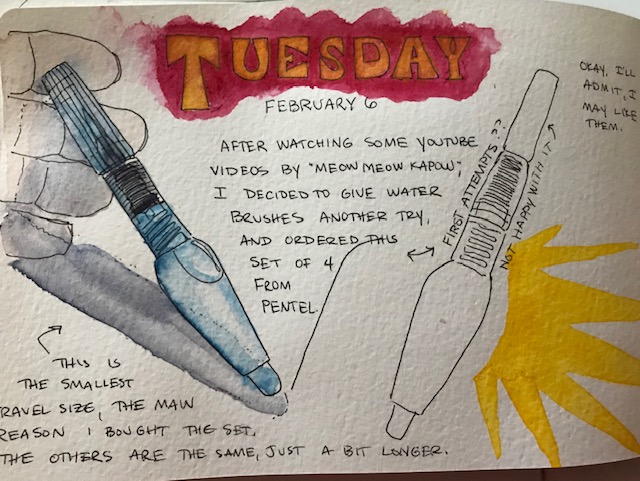 TUESDAY
FEBRUARY 6
AFTER WATCHING SOME YOUTUBE
VIDEOS BY "MEOW MEOW KAPOW",
I DECIDED TO GIVE WATER
BRUSHES ANOTHER TRY,
AND ORDERED THIS
SET OF 4
FROM
PENTEL.
THIS IS
THE SMALLEST
TRAVEL SIZE, THE MAIN
REASON I BOUGHT THE SET.
THE OTHERS ARE THE SAME, JUST A BIT LONGER.
FIRST ATTEMPTS??
NOT HAPPY WITH IT
OKAY, I'LL
ADMIT, I
MAY LIKE
THEM.